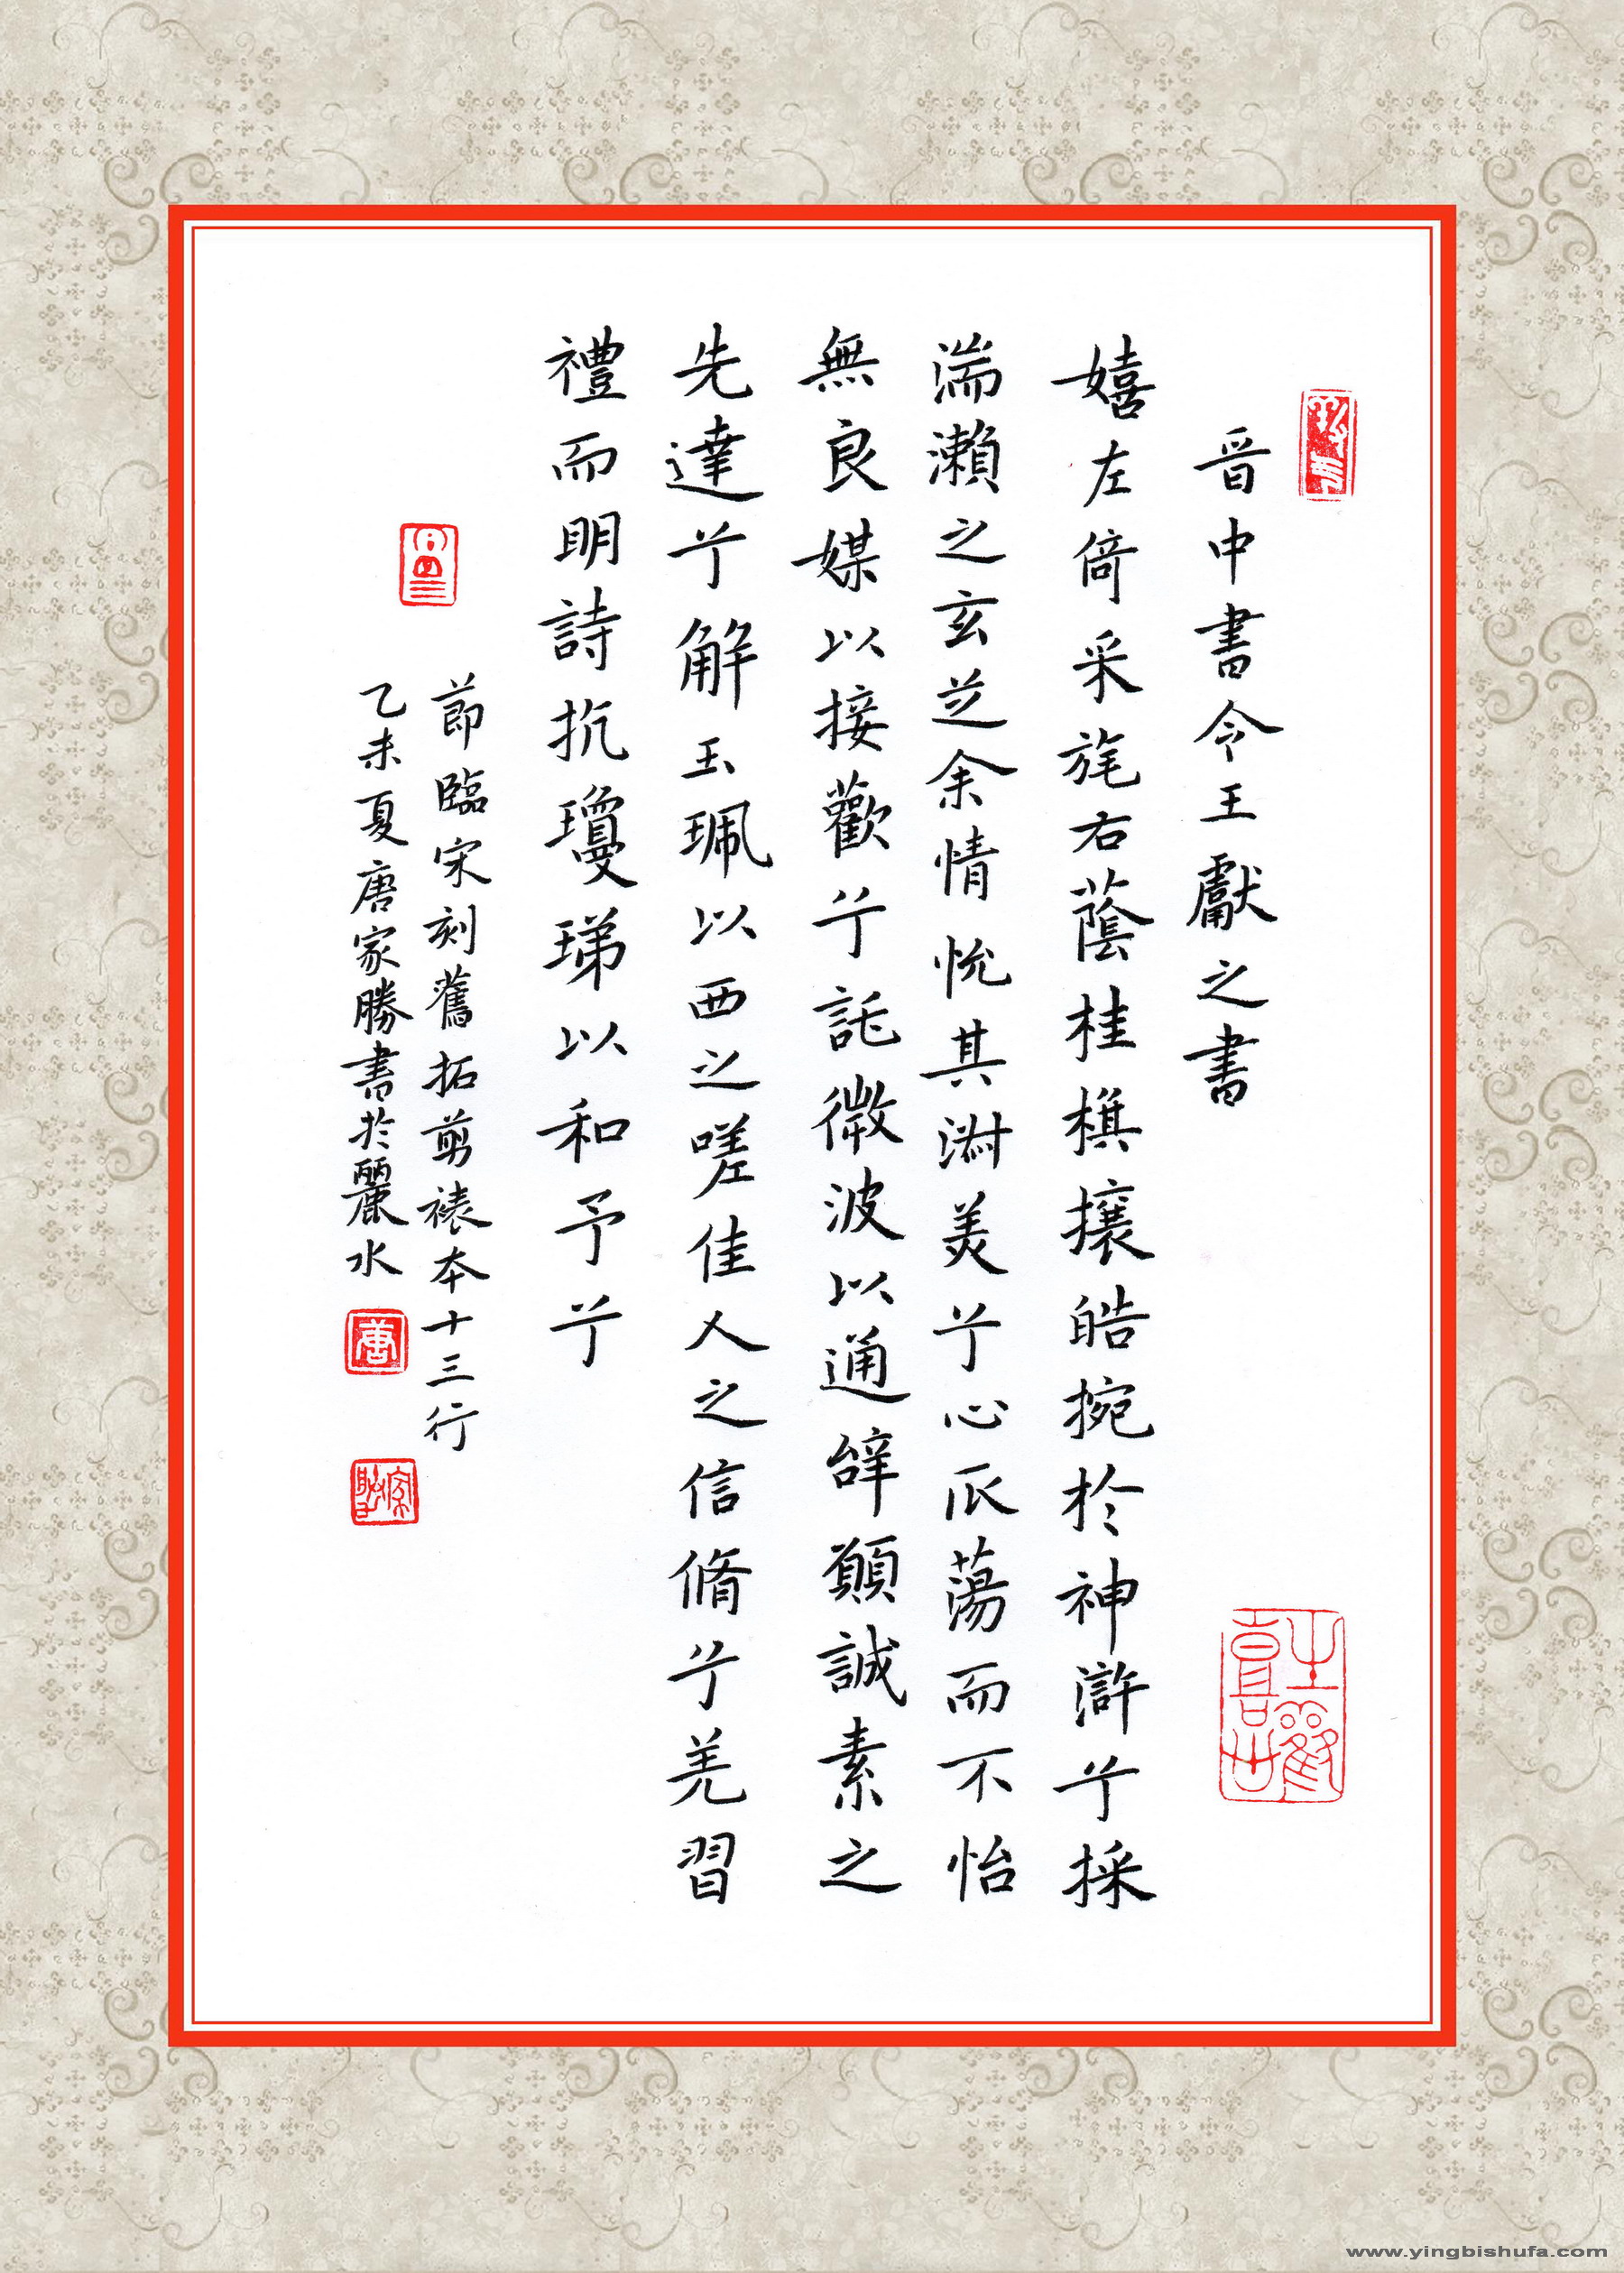 晉中書令王獻之書
嬉左倚采旄右蔭桂棋攘皓捥於神滸兮採
湍瀨之玄芝余情悅其淑美兮心𠂢蕩而不怡
無良媒以接歡兮託微波以通辭願誠素之
先達兮解玉珮以西之嗟佳人之信脩兮羌習
禮而明詩抗瓊珶以和予兮
節臨宋刻舊拓剪裱本十三行
乙未夏唐家勝書於麗水
唐
www.yingbishufa.com